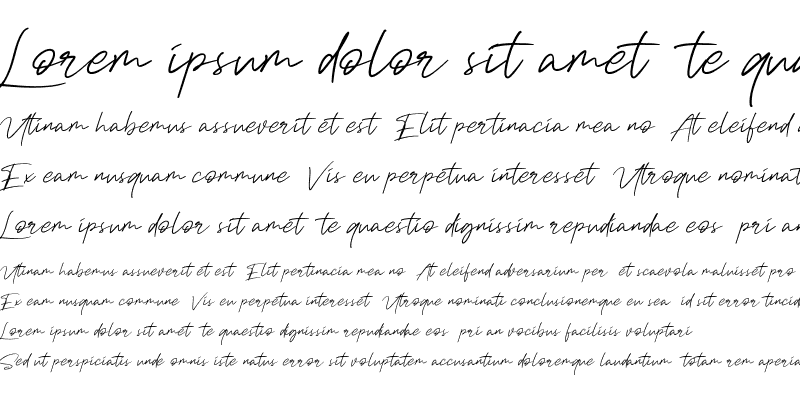 Lorem ipsum dolor sit amet te qua
Utinam habemus assueverit et est Elit pertinacia mea no At eleifend
Ex eam nusquam commune Vis eu perpetua interesset Utroque nominat
Lorem ipsum dolor sit amet te quaestio dignissim repudiandae eos pri an
Utinam habemus assueverit et est Elit pertinacia mea no At eleifend adversarium per et scaevola maluisset pro
Ex eam nusquam commune Vis eu perpetua interesset Utroque nominati conclusionemque eu sea id sit error tincid
Lorem ipsum dolor sit amet te quaestio dignissim repudiandae eos pri an vocibus facilisis voluptari
Sed ut perspiciatis unde omnis iste natus error sit voluptatem accusantium doloremque laudantium totam rem aperia